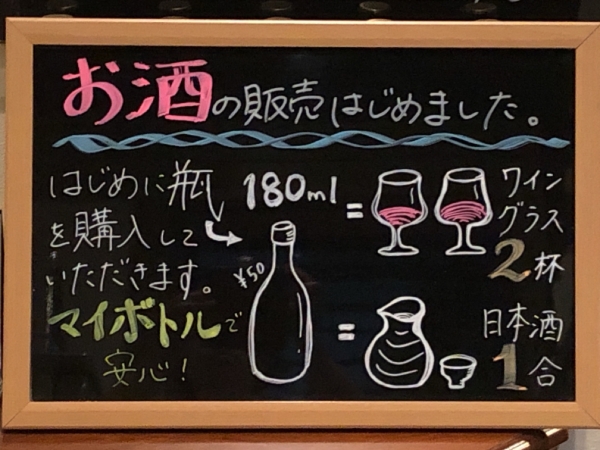 お酒の販売はじめました。
はじめに瓶
を購入して
いただきます。
マイボトルで
安心!
180ml
¥50
=
ワイン
グラス
2杯
=
日本酒
1合